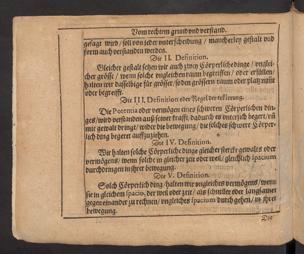 Vom rechten grund und verstand.
gesagt wird / soll von jeder unterscheidung / mancherley gestalt und
form auch verstanden werden.
Die II. Definition.
Gleicher gestalt sehen wir auch zwey Cörperliche dinge / ungleicher
grösse / wenn solche ungleichen raum begreiffen / oder erfüllen /
halten wir dasselbige für grösser, so den grössern raum oder platz
oder begreifft.
Die III. Definition oder Regel der
Die Potentia oder vermögen eines schweren Cörperlichen dinges
/ wird verstanden auß seiner krafft, dadurch es unterlich begert / un
mit gewalt dringt / wider die bewegung / die solches schwere Cörperlich
ding begeret auffzuziehen.
Die IV. Definition.
Wir halten solche Cörperliche dinge gleicher stercke gewalts oder
vermögens / wenn solche in gleicher zeit oder weil / gleichlich spacium
durchdringen in ihrer bewegung.
Die V. Definition.
Solch Cörperlich ding / halten wir ungleiches vermögens / wenn
sie in gleichem spacio, der weil oder zeit / als schneller oder langsamer
gegen einander zu rechnen / ungleiches spacium durch gehen / in ihrer
bewegung.
Die